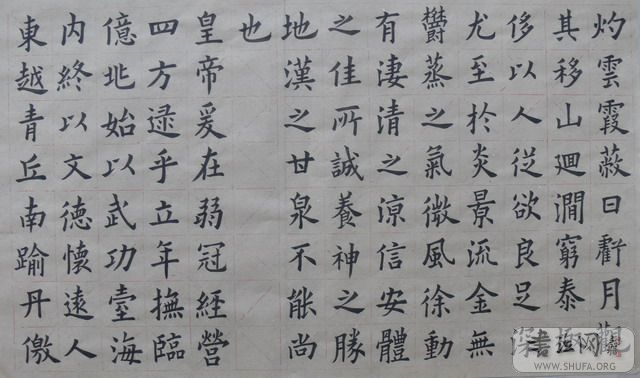 灼雲霞蔽日虧月
其移山迴澗窮泰
侈以人從欲良足
尤至於炎景流金無
鬱蒸之氣微風徐動
有淒清之涼信安體
之佳所誠養神之勝
地漢之甘泉不能尚
也
皇帝爰在弱冠經營
四方逮乎立年撫臨
億兆始以武功壹海
內終以文德懷遠人
東越青丘南踰丹儌
WWW.SHUFA.ORG